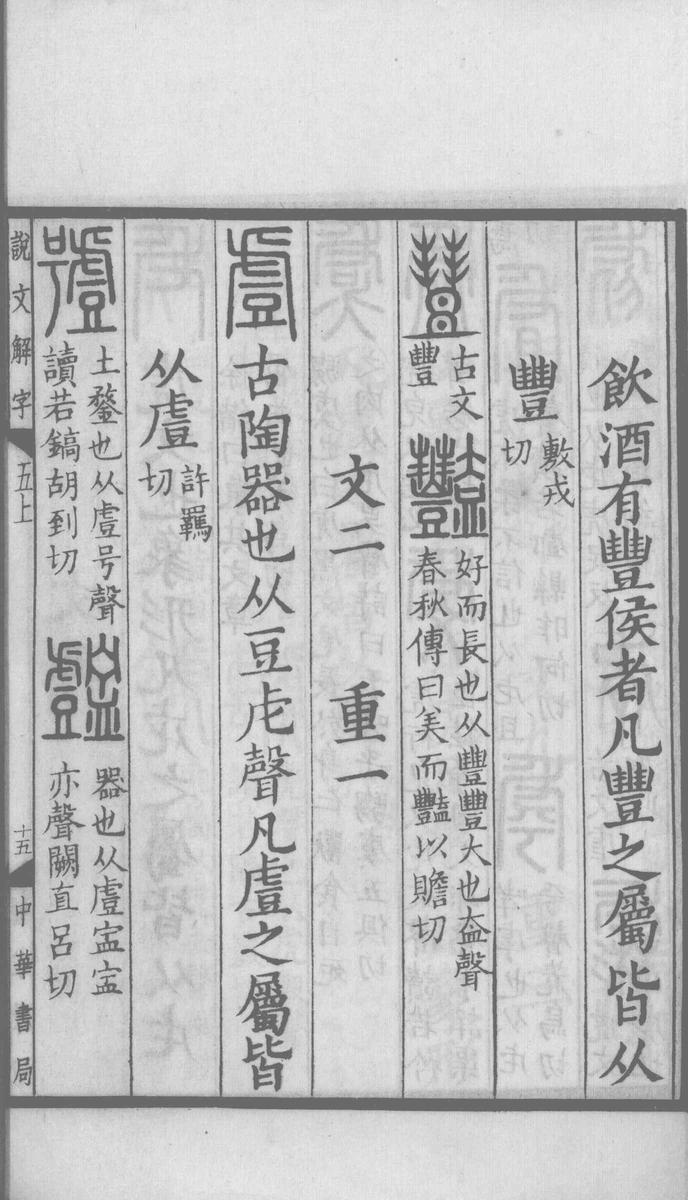 飲酒有豐侯者凡豐之屬皆从
豐敷戎切
古文豐
豔好而長也从豐豐大也盇聲春秋傳曰美而豔以贍切
文二 重一
䖒古陶器也从豆虍聲凡䖒之屬皆
从䖒許羈切
土鍪也从䖒号聲讀若鎬胡到切
器也从䖒𥁄𥁄亦聲闕直呂切
說文解字 五上 十五 中華書局